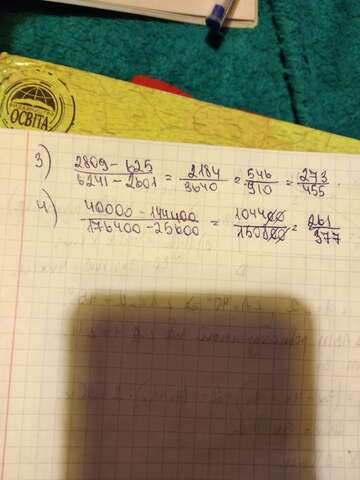 ОСВІТА
3) 2809 - 625 / 6241 - 2601 = 2184 / 3640 = 546 / 910 = 273 / 455
4) 40000 - 144400 / 176400 - 25600 = 104400 / 150800 = 261 / 377